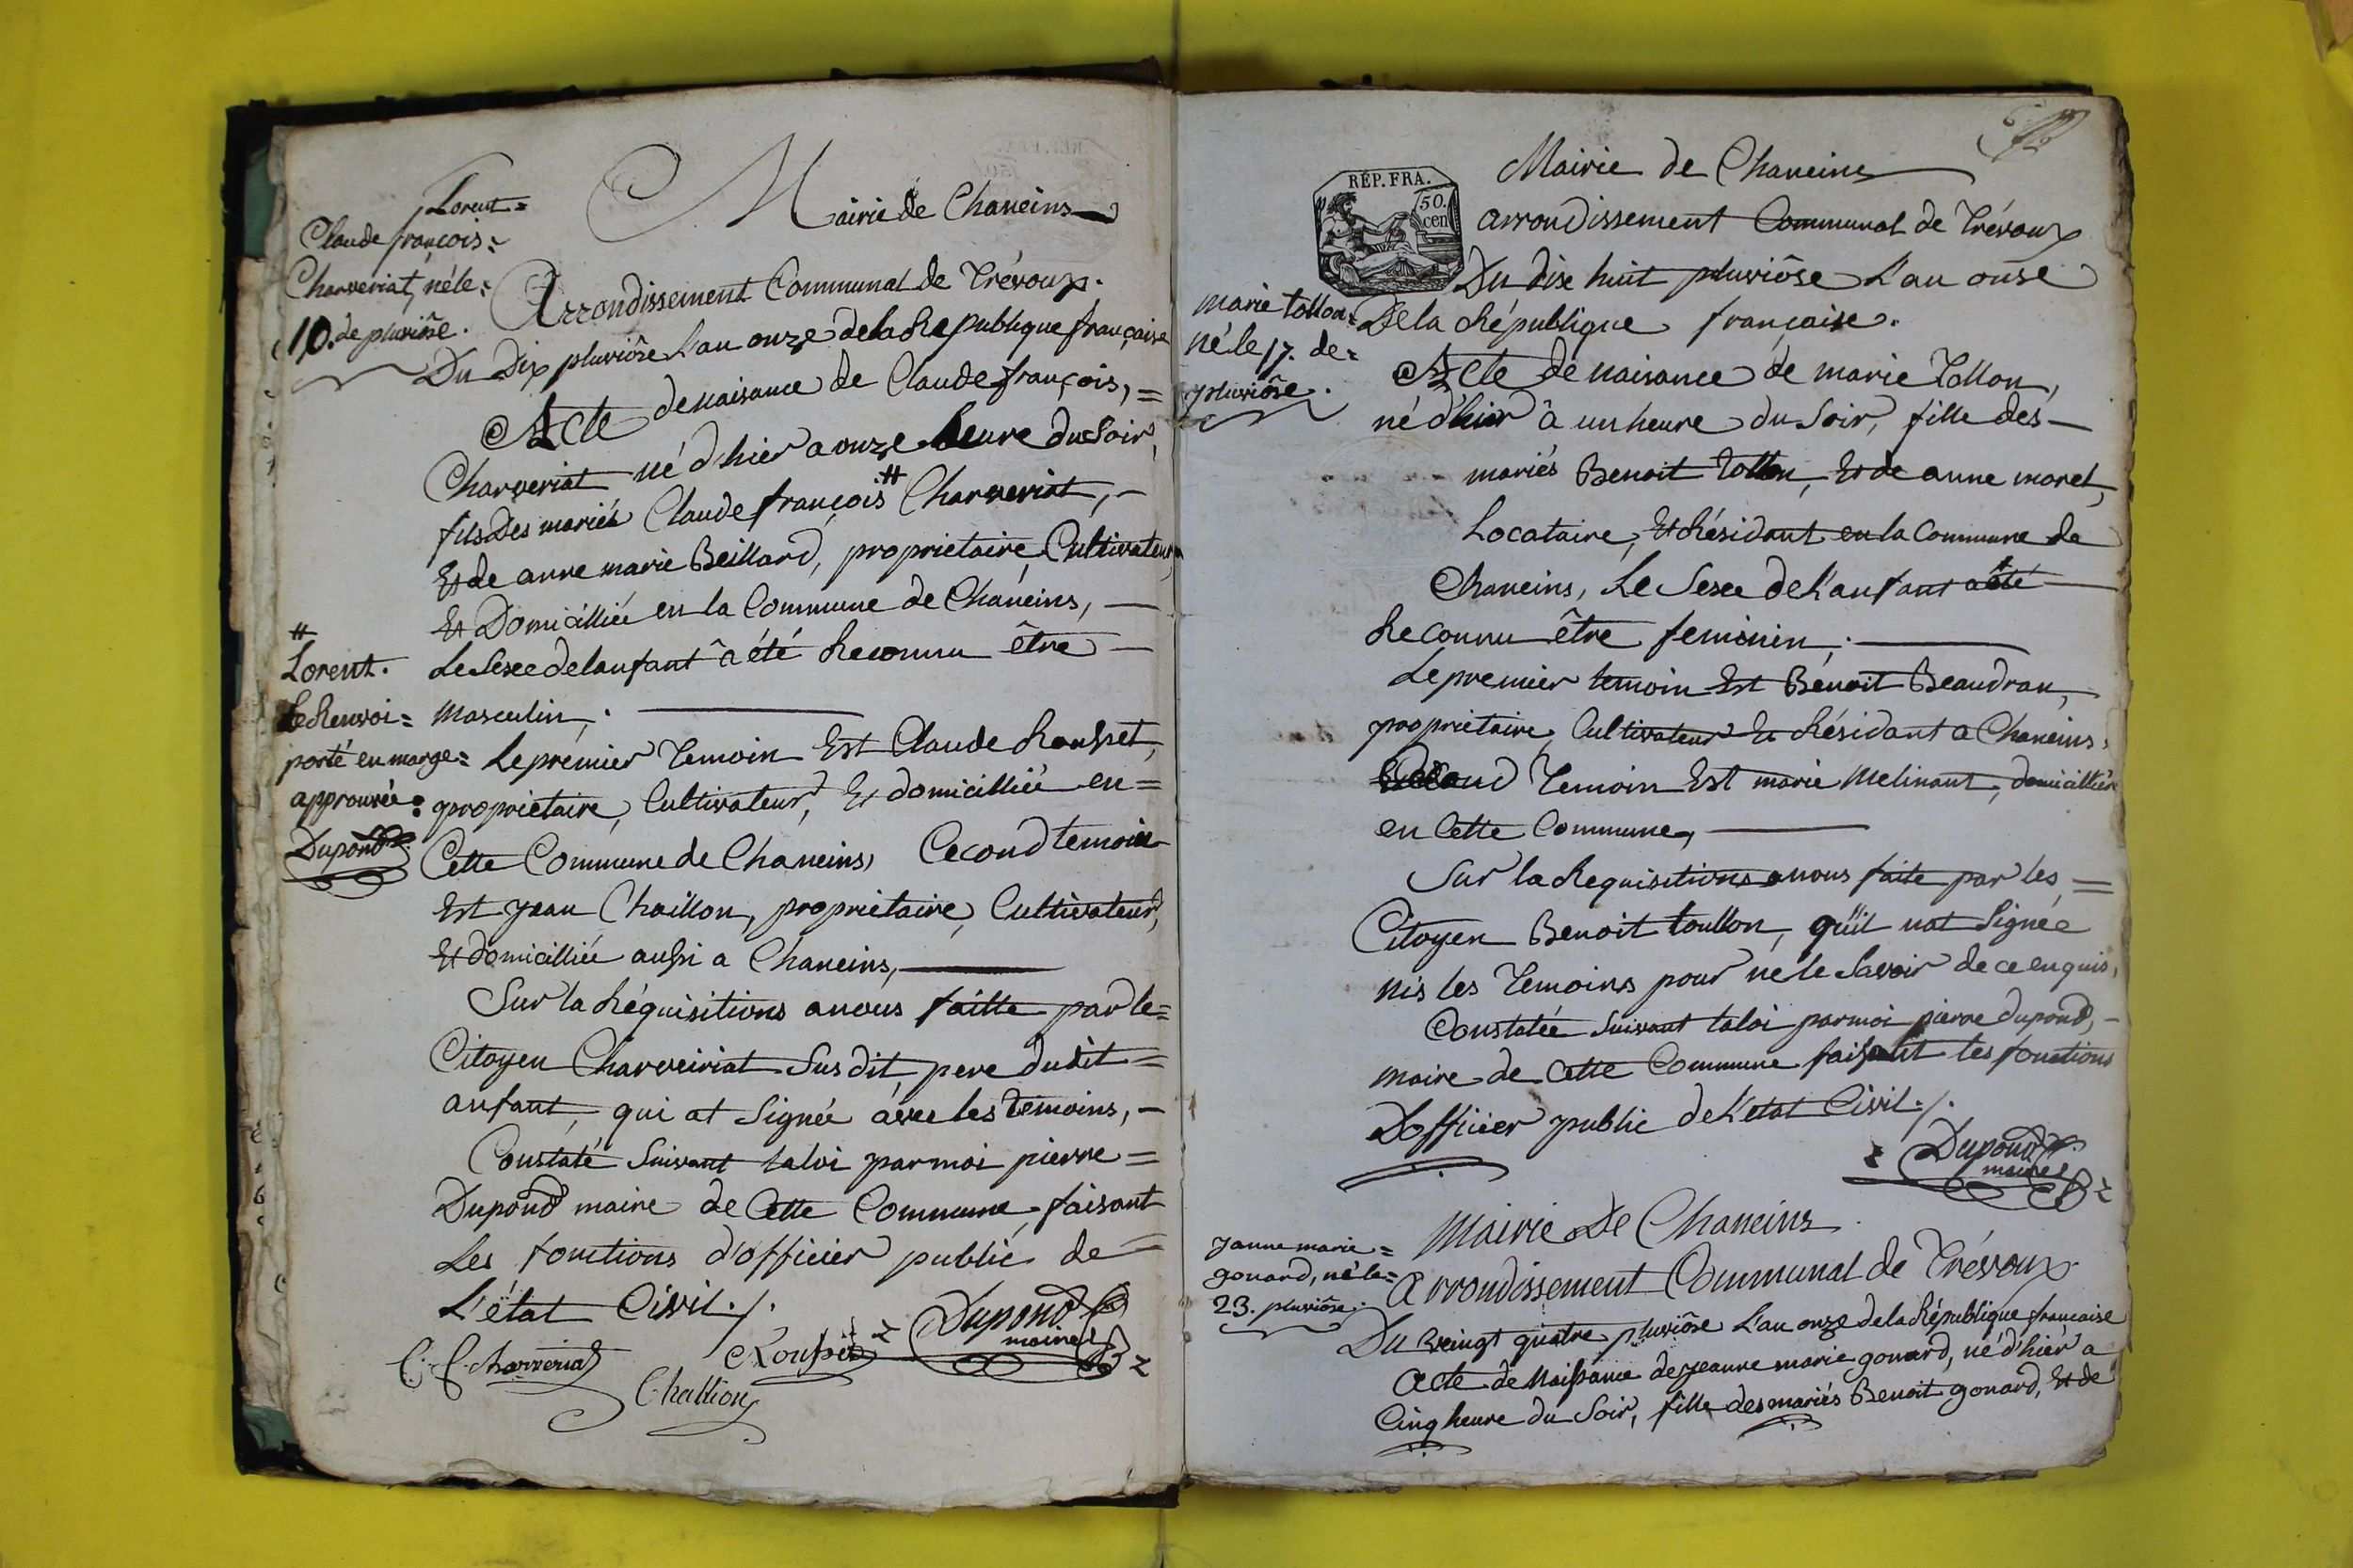 Lorent =
Claude françois =
Charveriat, né le =
10. de pluviôse.
Mairie de Chaneins
Arrondissement Communal de Trévoux.
Du Dix pluviôse L'an onze de la République française
Acte de naisance de Claude françois, =
Charveriat né d'hier a onze heure du Soir,
fils Des mariés Claude françois # Charveriat, -
Et de anne marie Beillard, propriétaire, Cultivateur,
Et Domicilliée en la Commune de Chaneins, —
Le Sexe de lanfant a été Reconnu être —
Masculin, . —
Le premier Temoin Est Claude Rousset,
propriétaire, Cultivateur, Et domicilliée en =
Cette Commune de Chaneins, Cecond temoin
Est jean Chaillon, propriétaire, Cultivateur,
Et domicilliée aussi a Chaneins, —
Sur la Réquisitions a nous faitte par le =
Citoyen Charveiriat Susdit, pere dudit =
anfant, qui at Signée avec les Temoins, -
Constaté Suivant la loi par moi pierre =
Dupond maire de Cette Commune, faisant
Les fonctions d'officier public de =
L'état Civil ./.
#
Lorent.
Le Renvoi =
porté en marge =
approuvée :
Dupond
C. f. charveriat
Rousset
Dupond
maire
Chaillion
RÉP. FRA.
50.
cen
Mairie de Chaneins
arrondissement Communal de Trévoux
Du dix huit pluviôse L'an onse
De la République française.
marie tollon =
né le 17. de =
pluviôse.
Acte de naisance de marie Tollon,
né d'hier â un heure du Soir, fille des —
mariés Benoit Tollon, Et de anne morel,
Locataire, Et Résidant en la Commune de
Chaneins, Le Sexe de L'anfant a été —
Reconnu être feminin, . —
Le premier temoin Est Benoit Beaudran,
propriétaire, Cultivateur Et Résidant a Chaneins,
Temoin Est marie Melinant, domicilliée
en Cette Commune, —
Sur la Requisitions a nous faite par les =
Citoyen Benoit toullon, qu'il nat Signée
nis les Temoins pour ne le Savoir de ce enquis,
Constatée Suivant la loi par moi pierre dupond, -
maire de Cette Commune faisant les fonctions
D'officier public de L'etat Civil ./.
Dupond
maire
Mairie De Chaneins
janne marie =
gonard, né le =
23. pluviôse.
Arrondissement Communal de Trévoux.
Du Veingt quatre pluviôse L'an onze de la République française
Acte de Naissance de jeanne marie gonard, né d'hier a
Cinq heure du Soir, fille des mariés Benoit gonard, Et de